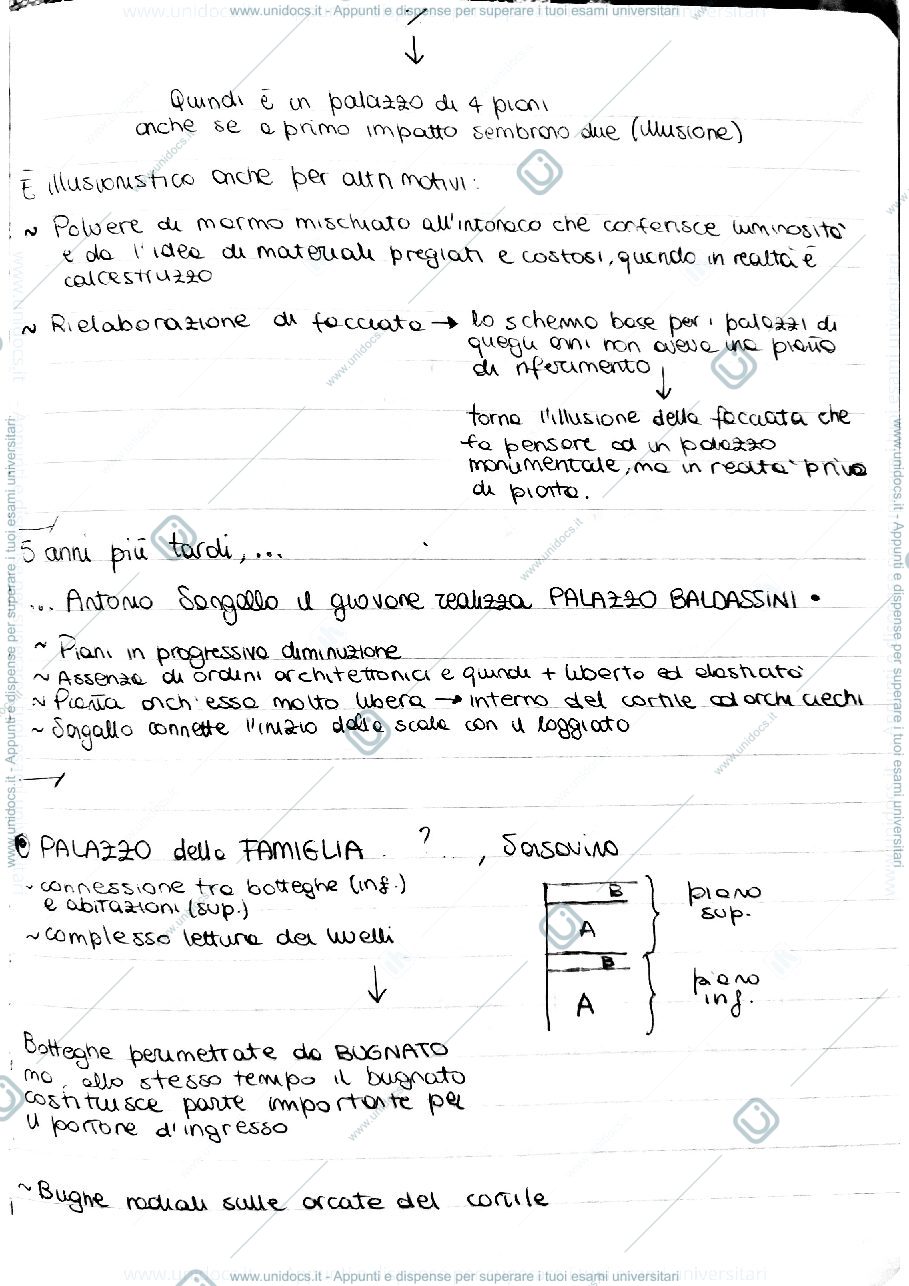 www.unidocs.it - Appunti e dispense per superare i tuoi esami universitari
Quindi è un palazzo di 4 piani
anche se a primo impatto sembrano due (illusione)
È illusionistico anche per altri motivi:
~ Polvere di marmo mischiato all'intonaco che conferisce luminosità
e da l'idea di materiali pregiati e costosi, quando in realtà è
calcestruzzo
~ Rielaborazione di facciata → lo schema base per i palazzi di
quegli anni non aveva una pianta
di riferimento
torna l'illusione della facciata che
fa pensare ad un palazzo
monumentale, ma in realtà priva
di pianta.
5 anni più tardi, ...
... Antonio Sangallo il giovane realizza PALAZZO BALDASSINI •
~ Piani in progressiva diminuzione
~ Assenza di ordini architettonici e quindi + libertà ed elasticità
~ Pianta anch'essa molto libera → interno del cortile ad archi ciechi
~ Sangallo connette l'inizio della scala con il loggiato
PALAZZO della FAMIGLIA ? , Sansovino
~ connessione tra botteghe (inf.)
e abitazioni (sup.)
~ complesso lettura dei livelli
B
A
piano
sup.
B
A
piano
inf.
Botteghe perimetrate da BUGNATO
ma, allo stesso tempo il bugnato
costituisce parte importante per
il portone d'ingresso
~ Bugne radiali sulle arcate del cortile
www.unidocs.it - Appunti e dispense per superare i tuoi esami universitari